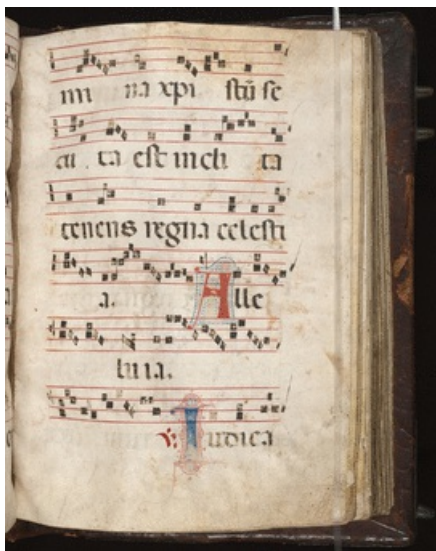 mi na xpi stū se
cu ta est incli ta
tenens regna celesti
a. Alle
luia.
℣. Iudica